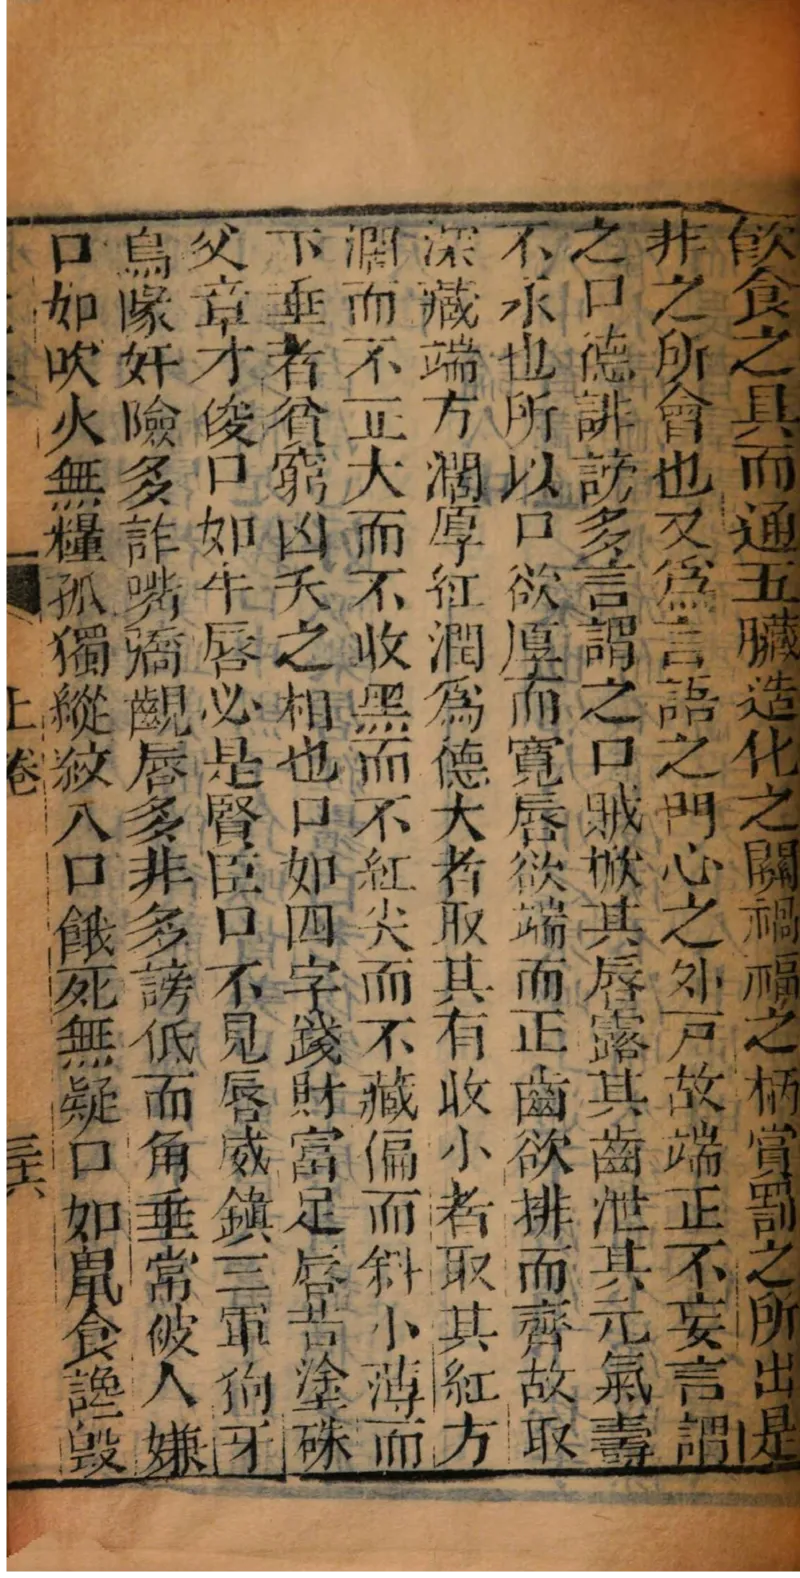 飲食之具而通五臟造化之關禍福之柄賞罰之所出是
非之所會也又爲言語之門心之外戸故端正不妄言謂
之口德誹謗多言謂之口賊掀其唇露其齒泄其元氣壽
不永也所以口欲厚而寛唇欲端而正齒欲排而齊故取
深藏端方濶厚紅潤爲德大者取其有收小者取其紅方
濶而不正大而不收黑而不紅尖而不藏偏而斜小薄而
下垂者貧窮凶夭之相也口如四字踐財富足唇若塗硃
父章才俊口如牛唇必是賢臣口不見唇威鎮三軍狗牙
鳥喙奸險多詐嘴齲唇多非多謗低而角垂常破人嫌
口如吹火無糧孤獨縱紋入口餓死無疑口如鼠食讒毀
上卷
三十六